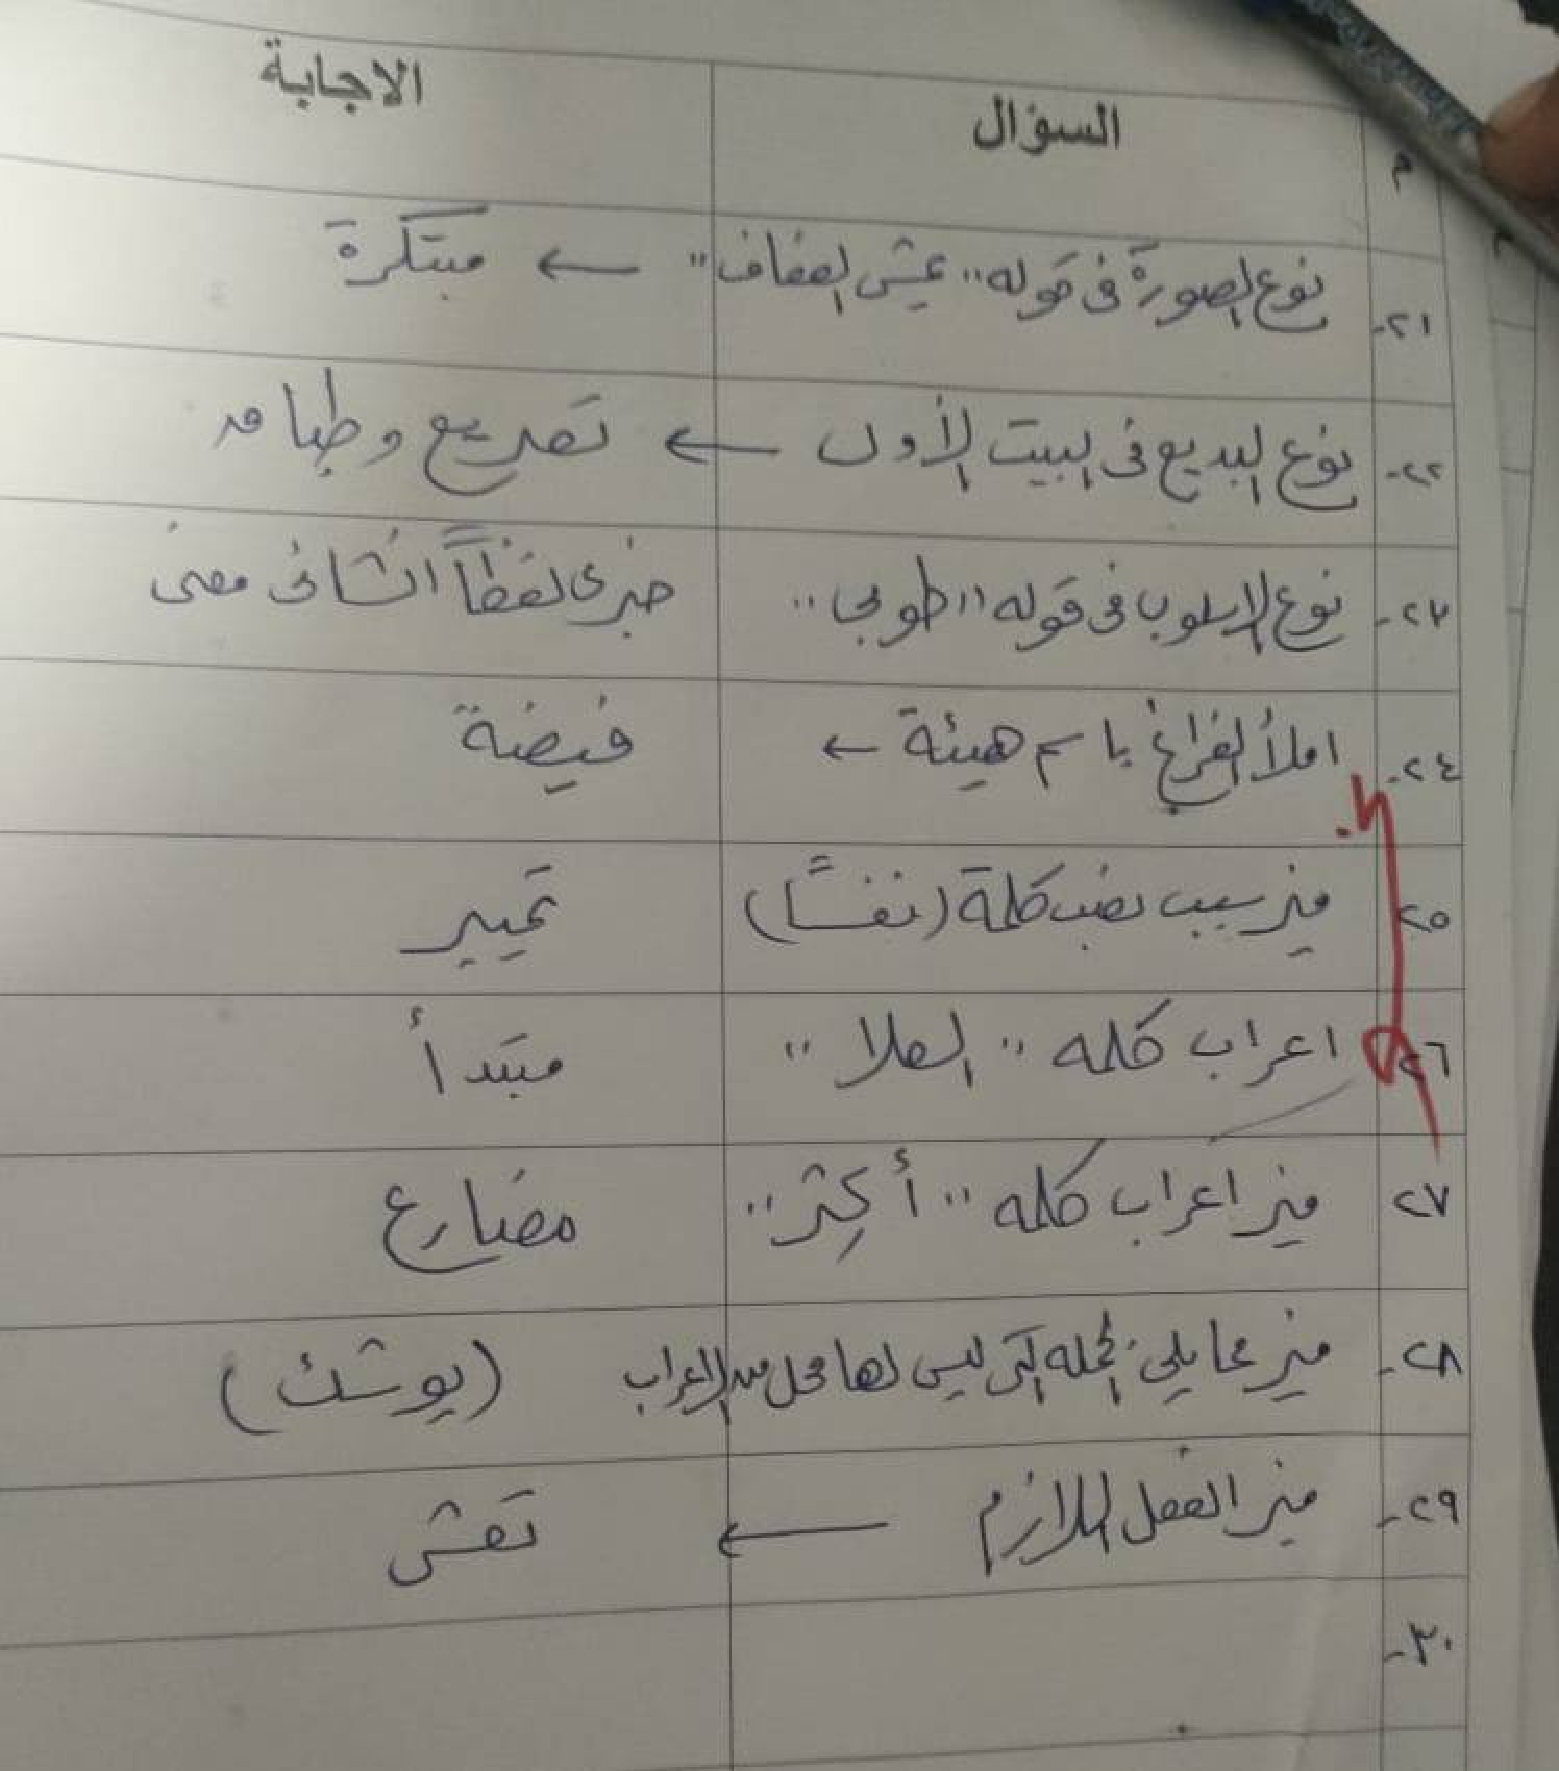 م السؤال الاجابة
٢١- نوع الصورة فى قوله " عش العفاف " ← مبتكرة
٢٢- نوع البديع فى البيت الأول ← تصريع وطباق
٢٣- نوع الاسلوب فى قوله "طوبى" خبرى لفظاً انشائى معنى
٢٤- املأ الفراغ باسم هيئة ← فيضة
٢٥ ميز سبب نصب كلمة (نفسًا) تمييز
٢٦ اعراب كلمه " العلا " مبتدأ
٢٧ ميز اعراب كلمه " أكثِر " مضارع
٢٨- ميز مما يلى الجمله التى ليس لها محل من الإعراب (يوشك)
٢٩- ميز الفعل اللازم ← تعش
٣٠-